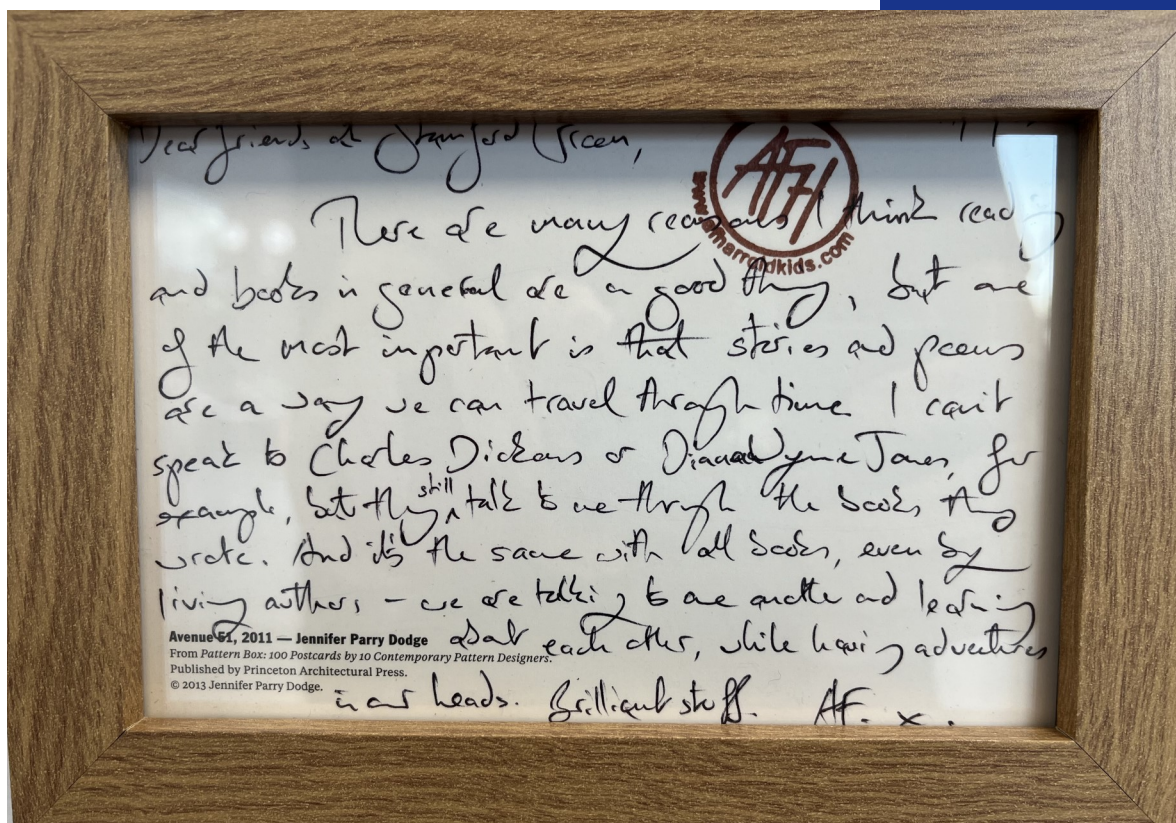 Dear friends at Stamford Green,
AFH
www.afharroldkids.com
There are many reasons I think reading
and books in general are a good thing, but one
of the most important is that stories and poems
are a way we can travel through time. I can't
speak to Charles Dickens or Diana Wynne Jones, for
example, but they still talk to me through the books they
wrote. And it's the same with all books, even by
living authors – we are talking to one another and learning
about each other, while having adventures
in our heads. Brilliant stuff. AF. x.
Avenue 51, 2011 — Jennifer Parry Dodge
From Pattern Box: 100 Postcards by 10 Contemporary Pattern Designers.
Published by Princeton Architectural Press.
© 2013 Jennifer Parry Dodge.